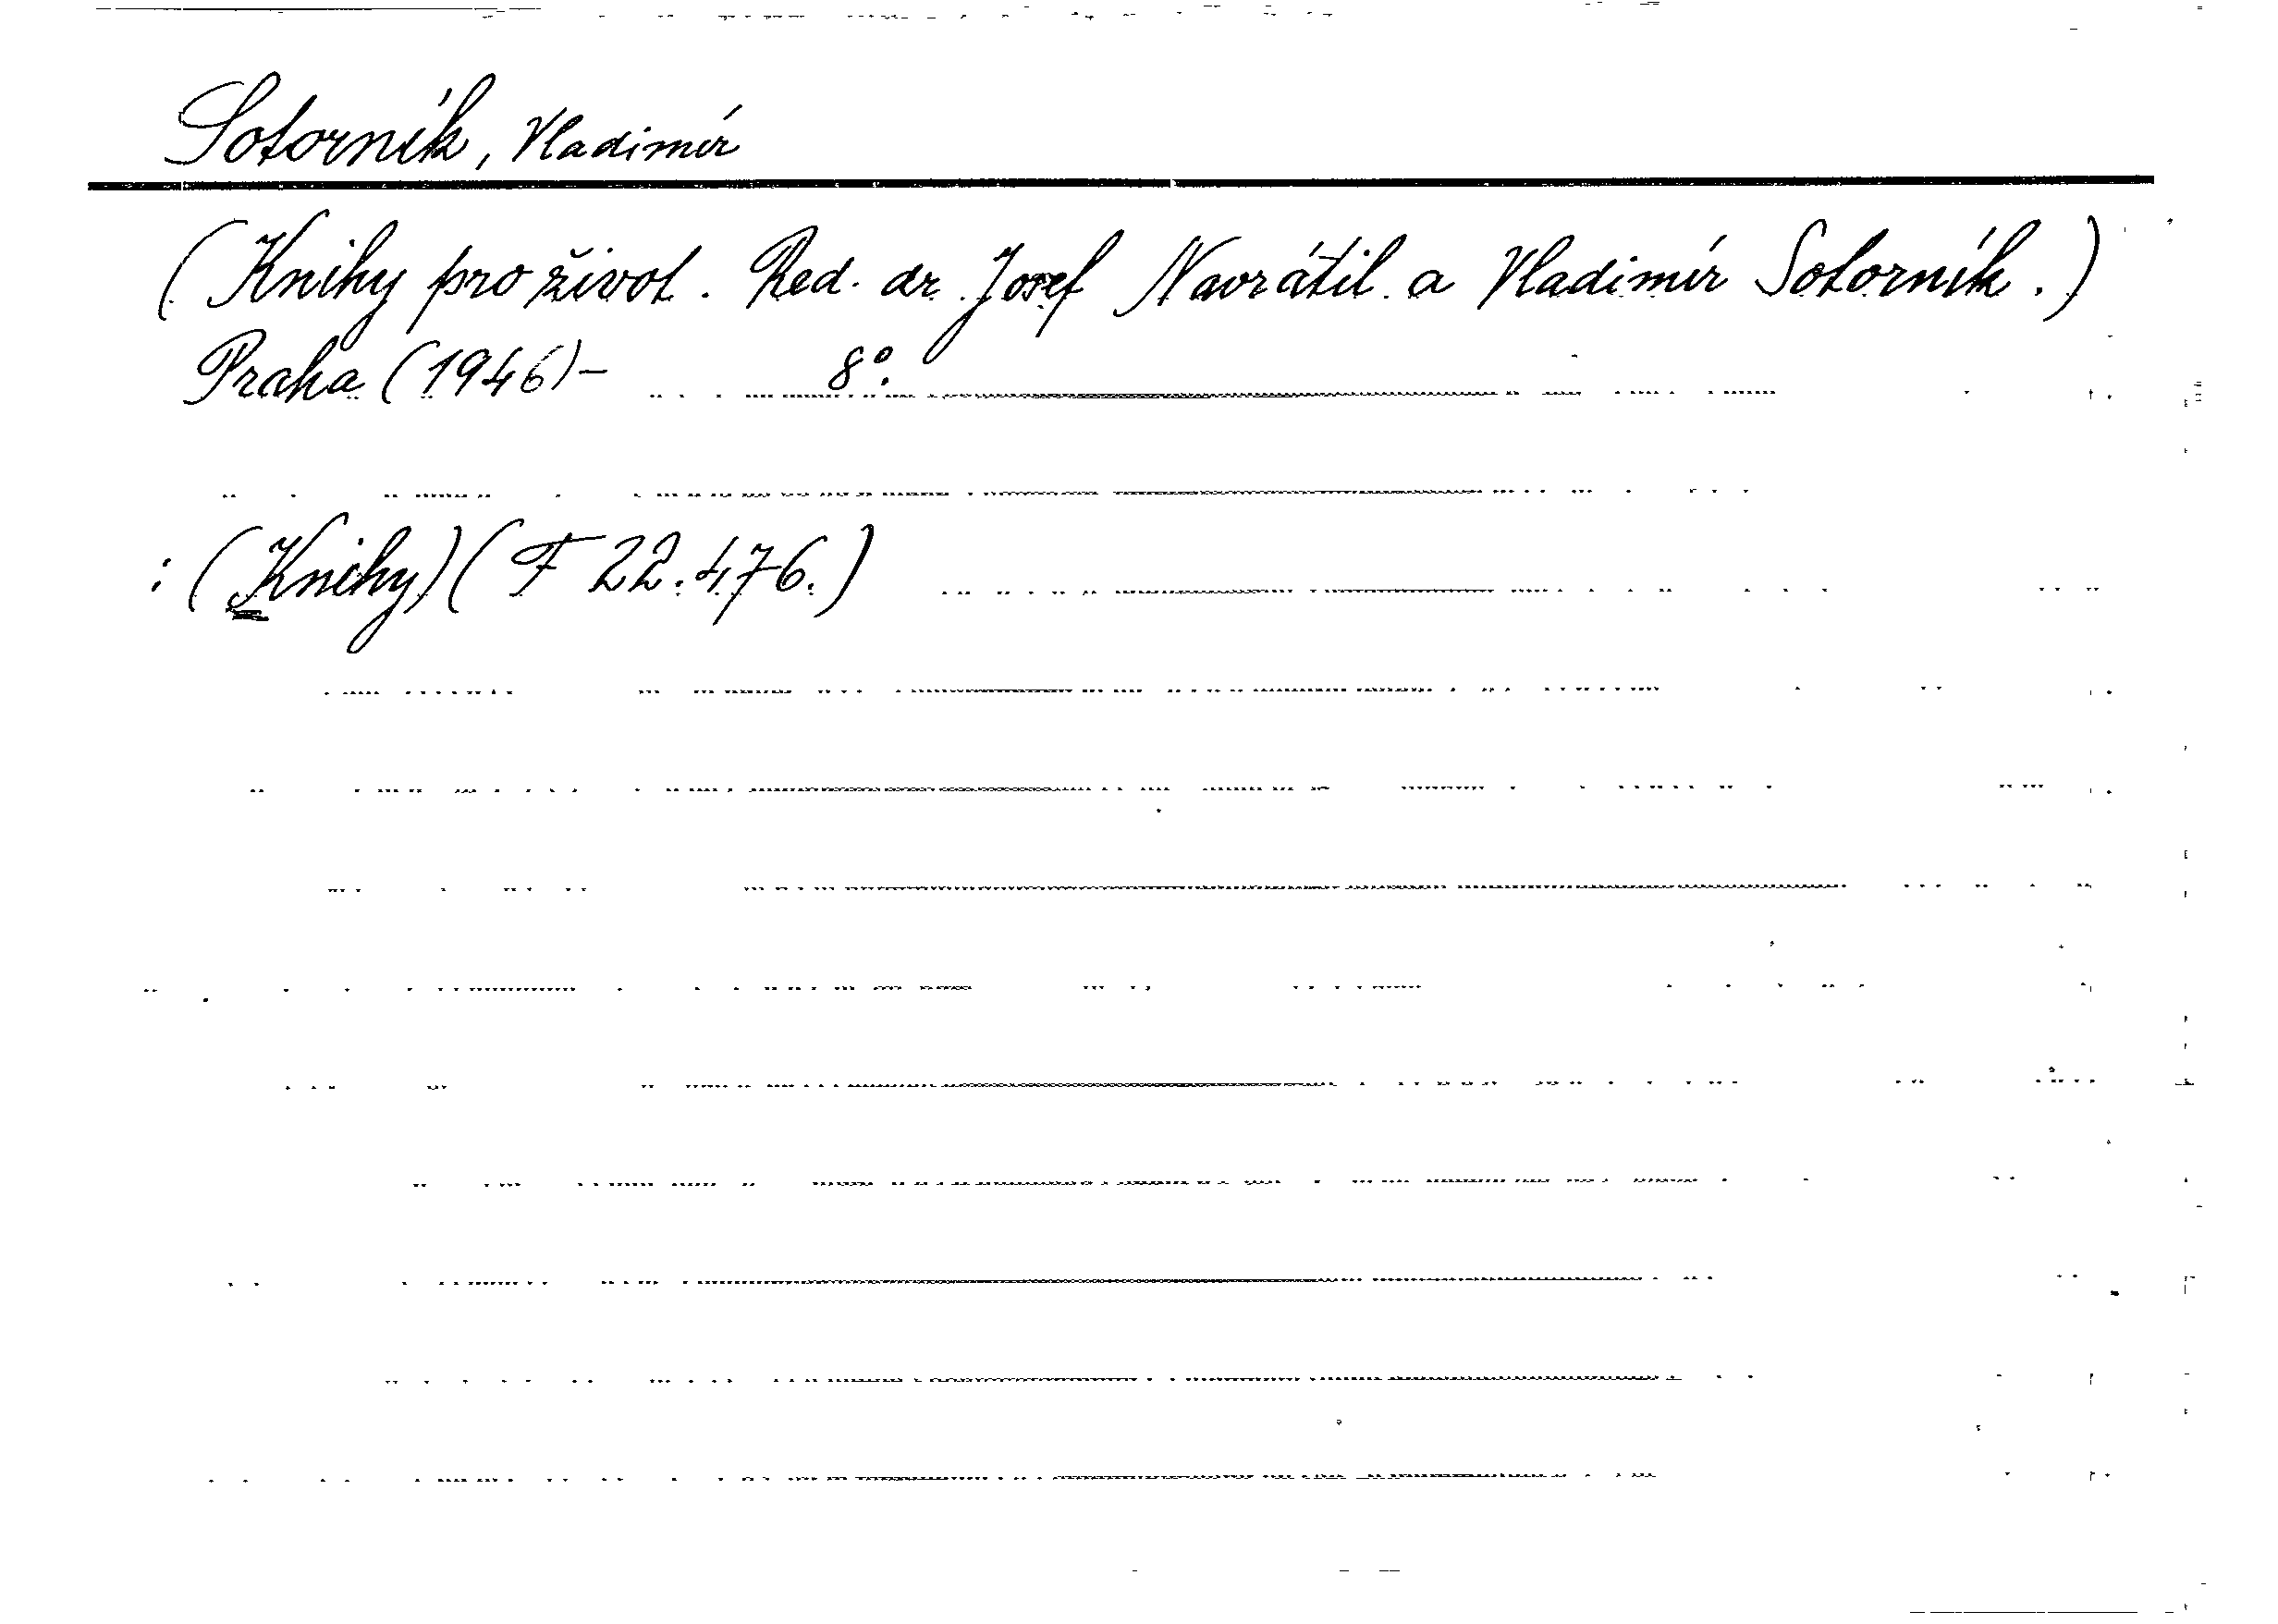 Sotorník, Vladimír
(Knihy pro život. Red. dr. Josef Navrátil a Vladimír Sotorník.)
Praha (1946)- 8º.
: (Knihy) (F 22.476.)